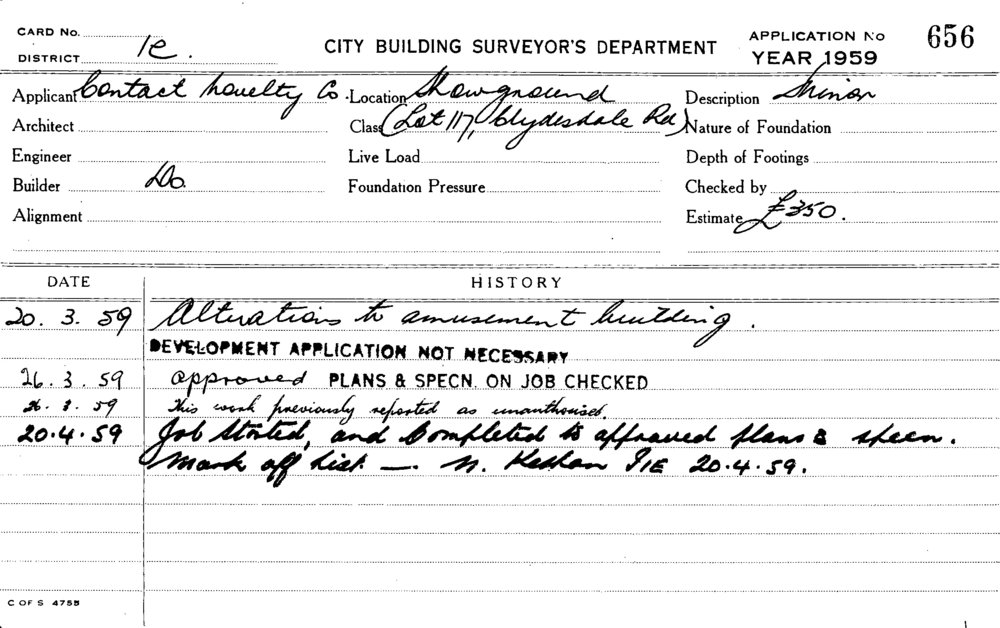 CARD No.
DISTRICT 1e.
CITY BUILDING SURVEYOR'S DEPARTMENT
APPLICATION No 656
YEAR 1959
Applicant Contact Novelty Co. Location Showground Description Minor
Architect Class (Lot 117, Clydesdale Rd) Nature of Foundation
Engineer Live Load Depth of Footings
Builder Do. Foundation Pressure Checked by
Alignment Estimate £350.
DATE HISTORY
20. 3. 59 Alterations to amusement building.
DEVELOPMENT APPLICATION NOT NECESSARY
26. 3. 59 approved PLANS & SPECN. ON JOB CHECKED
26. 3. 59 This work previously reported as unauthorised.
20.4.59 Job Started, and Completed to approved plans & specn.
Mark off List — 20.4.59.
C OF S 475B